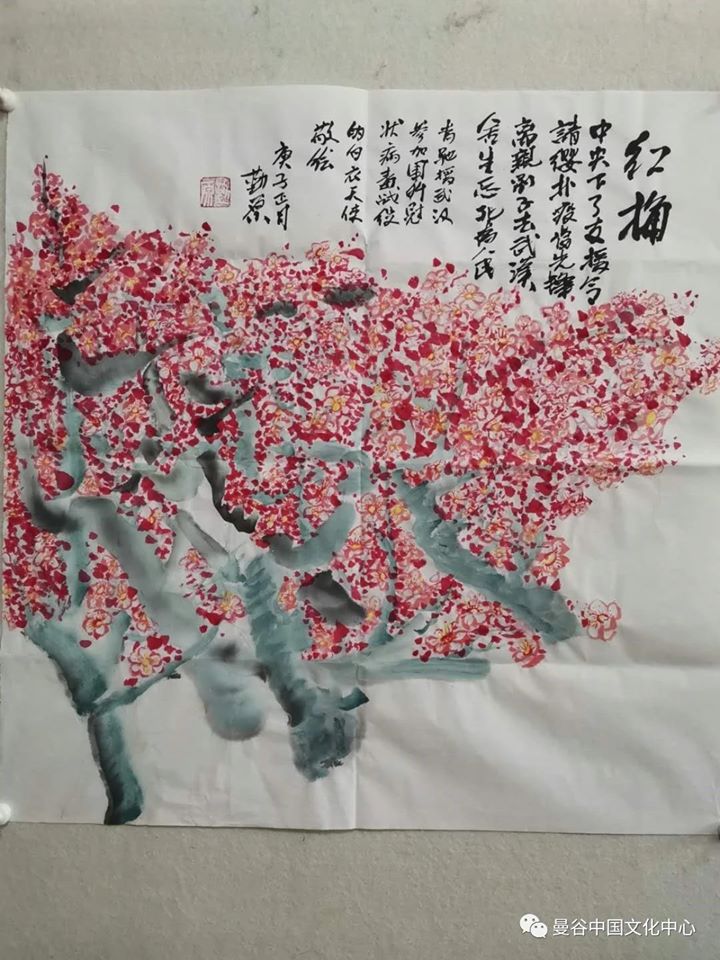 红梅
中央下了支援令
請缨扑疫恐先操
离親别子去武漢
舍生忘死为人民
为驰援武汉
参加围歼冠
状病毒战役
的白衣天使
敬绘
庚子正月
勤
曼谷中国文化中心